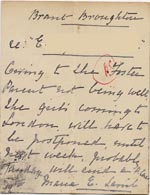 Brant Broughton
re: E
Owing to the Foster
Parent not being well
the girls coming to
London will have to
be postponed until
next week, probably
Tuesday will send a
Maria E. Lamb